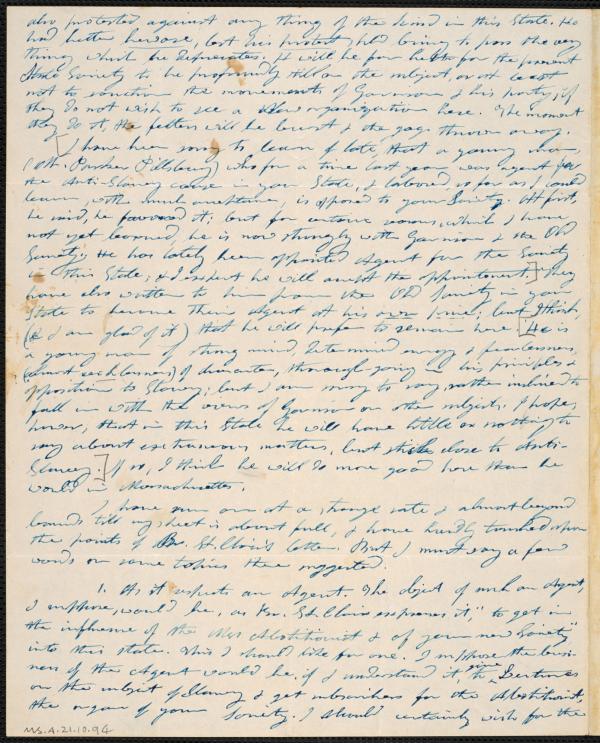 also protested against any thing of the kind in this State. He
had better because, lest his protest shd bring to pass the very
thing which he deprecates. It will be far better for the present
State Society to be profoundly still on the subject, or at least
not to sanction the movements of Garrison & his party, if
they do not wish to see a new organization here. The moment
they do it, the fetters will be burst & the gag thrown away.
[I have been sorry to learn of late, that a young man,
(Mr. Parker Pillsbury) who for a time last year was agent for
the Anti-Slavery cause in your State, & labored, so far as I could
learn, with much acceptance, is opposed to your Society. At first,
he said, he favored it; but for certain reasons, which I have
not yet learned, he is now strongly with Garrison & the Old
Society. He has lately been appointed Agent for the Society
in this State; & I expect he will accept the appointment.] They
have also written to him from the Old Society in your
State to become their agent at his own price; but I think,
(& I am glad of it) that he will prefer to remain here. [He is
a young man of strong mind, determined energy & fearlessness,
(almost recklessness) of character, thorough going in his principles &
opposition to Slavery; but I am sorry to say, rather inclined to
fall in with the views of Garrison on other subjects. I hope,
however, that in this State he will have little or nothing to
say about extraneous matters, but stick close to Anti-
Slavery.] If so, I think he will do more good here than he
would in Massachusetts.
I have run on at a strange rate & almost beyond
bounds till my sheet is about full, & have hardly touched upon
the points of Br. St. Clair's letter. But I must say a few
words on some topics there suggested.
1. As it respects an Agent. The object of such an Agent,
I suppose, would be, as Br. St. Clair expresses it, "to get in
the influence of the Mass Abolitionist & of your new Society"
into this state. This I should like for one. I suppose the busi-
ness of the Agent would be, if I understand it, to give Lectures
on the subject of Slavery & get subscribers for the Abolitionist,
the organ of your Society. I should certainly wish for the
MS. A. 21. 10. 94